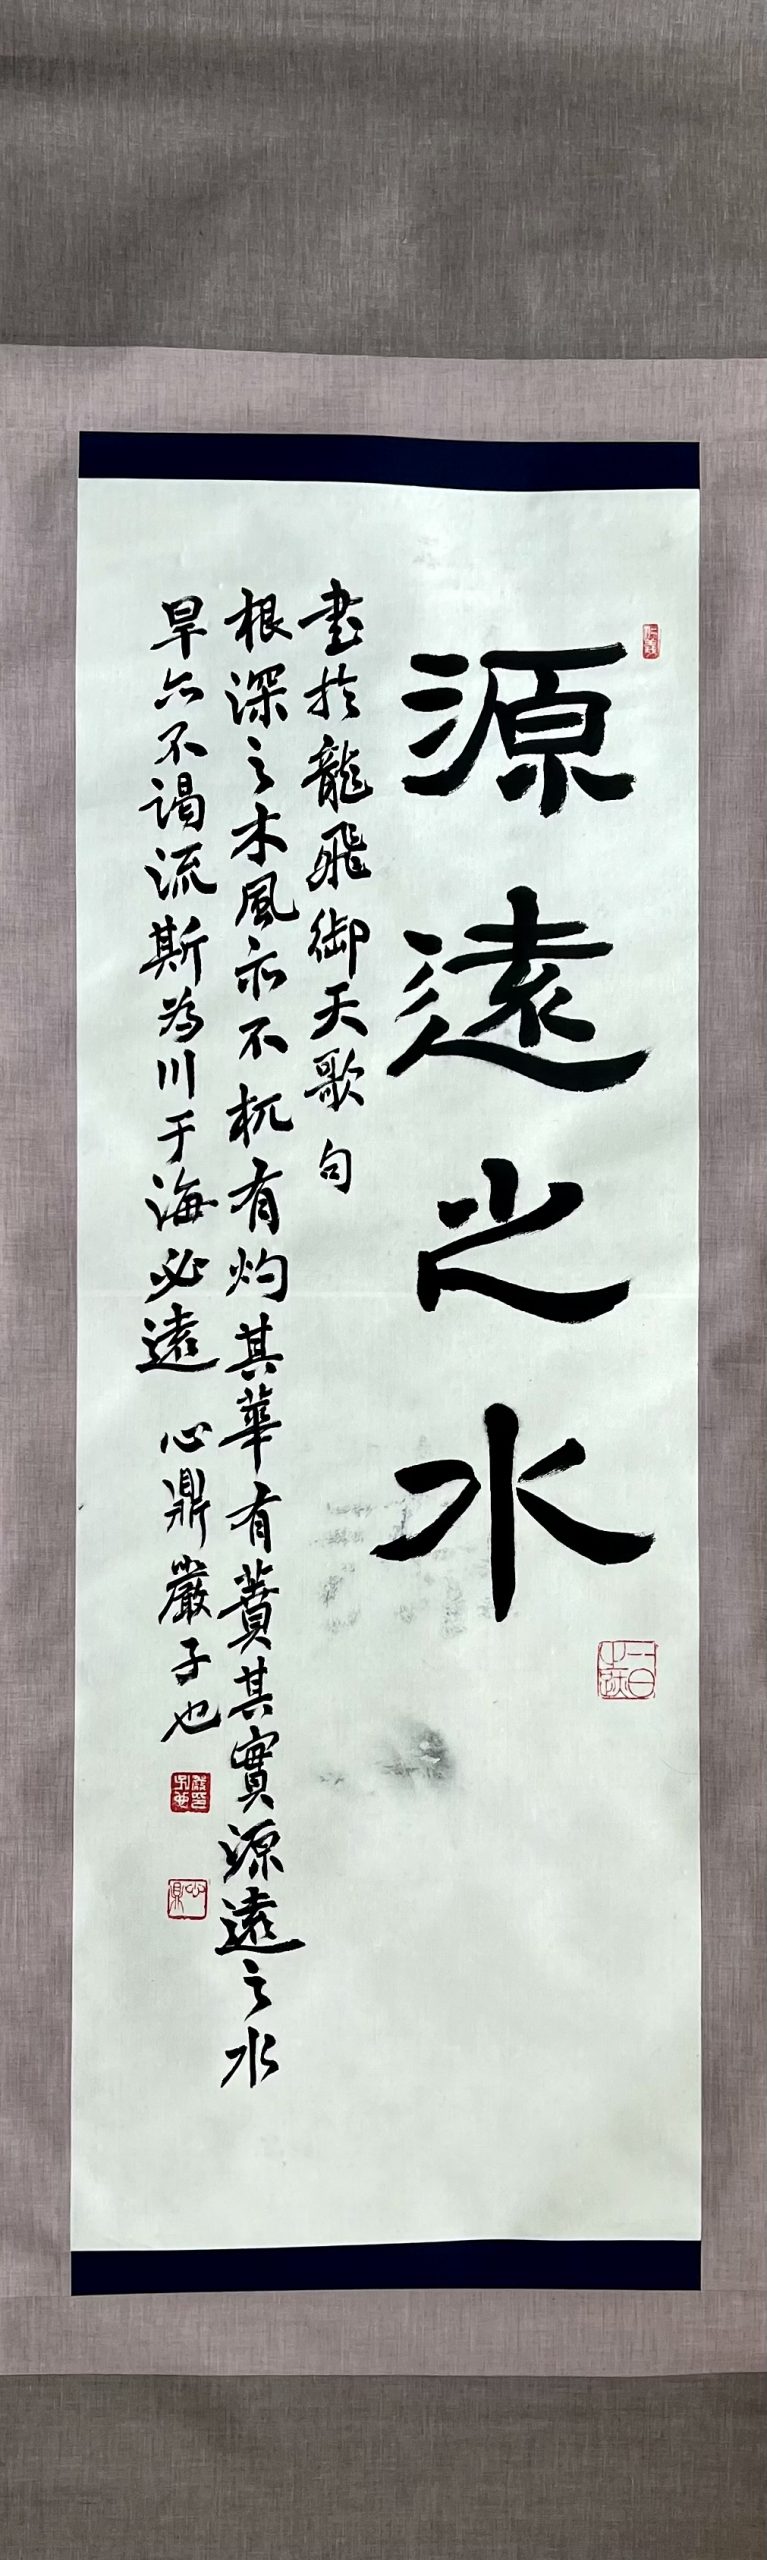 源遠之水
書於龍飛御天歌句
根深之木風亦不杌有灼其華有蕡其實源遠之水
旱亦不竭流斯為川于海必達 心鼎嚴子也
心鼎